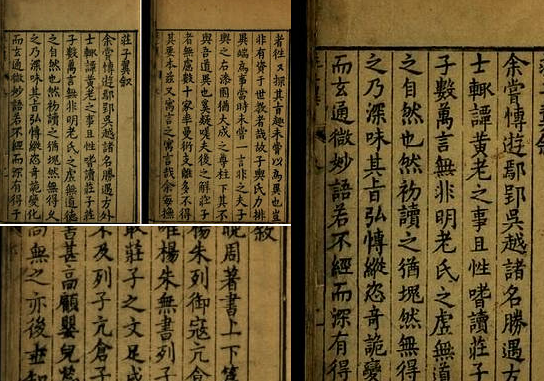 莊子翼敘
余嘗慱遊鄢郢吳越諸名勝遇方外
士輒譚黃老之事且性嗜讀莊子莊
子數萬言無非明老氏之虛無道德
之自然也然初讀之猶塊然無得久
之乃深味其旨弘慱縱恣奇詭變化
而玄通微妙語若不經而深有得于
者徃々探其旨趣未嘗以為異也豈
非有資于世教者哉故子輿氏力排
異端為事當時未嘗一言非之夫子
與之右漆園猶大成之尊柱下其不
與吾道異也奚疑嗟夫後之解莊子
者無慮數十家率曼衍支離多不得
其要本茲又寓言之寓言哉余每撫
余嘗慱遊鄢郢吳越諸名勝遇方
士輒譚黃老之事且性嗜讀莊子
子數萬言無非明老氏之虛無道
之自然也然初讀之猶塊然無得
之乃深味其旨弘慱縱恣奇詭變
而玄通微妙語若不經而深有得
敘
周著書上下篇
唯楊朱無書列子
楊朱列御寇亢倉
莊子之文足成
不及列子亢倉子
書甚高顧嬰兒
尚無之亦後世知